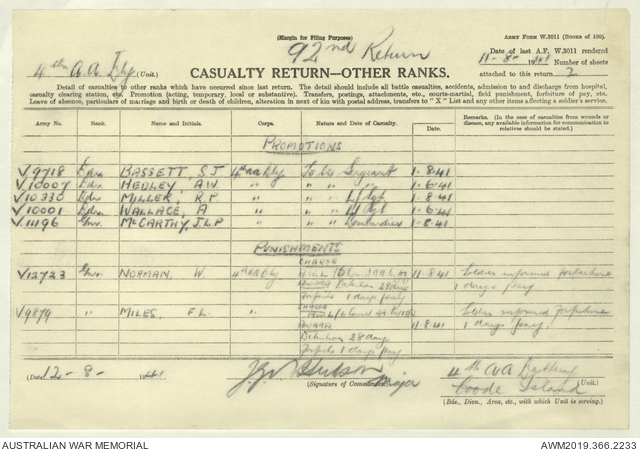 (Margin for Filing Purposes)
ARMY FORM W.3011 (BOOKS OF 100).
92nd Return
4th A.A. Bty (Unit.)
Date of last A.F. W.3011 rendered
11-8-1941 Number of sheets
attached to this return 2
CASUALTY RETURN—OTHER RANKS.
Detail of casualties to other ranks which have occurred since last return. The detail should include all battle casualties, accidents, admission to and discharge from hospital,
casualty clearing station, etc. Promotion (acting, temporary, local or substantive). Transfers, postings, attachments, etc., courts-martial, field punishment, forfeiture of pay, etc.
Leave of absence, particulars of marriage and birth or death of children, alteration in next of kin with postal address, transfers to "X" List and any other items affecting a soldier's service.
Army No. Rank. Name and Initials. Corps. Nature and Date of Casualty. Date. Remarks. (In the case of casualties from wounds or disease, any available information for communication to relatives should be stated.)
PROMOTIONS
V9718 Bdr BASSETT, S J 4th AA Bty To be Sergeant 1-8-41
V10007 Bdr HEDLEY A.W. " " L/Sgt 1-6-41
V10330 Bdr MILLER, K " " L/Sgt 1-8-41
V10001 Bdr WALLACE, A " " L/Sgt 1-6-41
V11196 Gnr McCARTHY, J.L.P " " Bombardier 1-8-41
PUNISHMENTS
CHARGE
V12723 Gnr NORMAN, W. 4th AA Bty A.W.L. 11-8-41 Soldier informed forfeiture
AWARD Detention 28 days 1 days pay
Forfeits 1 days pay
CHARGE
V9879 " MILES, F L. " A.W.L. Soldier informed forfeiture
AWARD 11-8-41 1 days pay
Detention 28 days
Forfeits 1 days pay
(Date) 12-8-1941
Major
(Signature of Commander)
4th AA Battery (Unit.)
Coode Island
(Bde., Divn., Area, etc., with which Unit is serving.)
AUSTRALIAN WAR MEMORIAL
AWM2019.366.2233